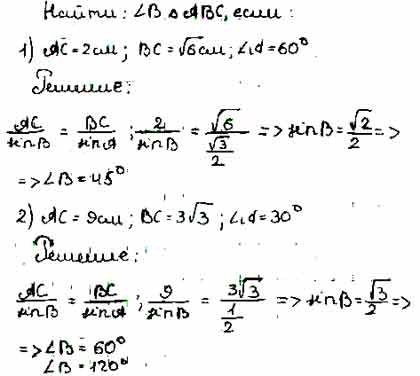 Найти: ∠B Δ ABC, если:
1) AC = 2см; BC = √6 см; ∠A = 60°
Решение:
AC/sinB = BC/sinA; 2/sinB = √6/(√3/2) => sinB = √2/2 =>
=> ∠B = 45°
2) AC = 9см; BC = 3√3; ∠A = 30°
Решение:
AC/sinB = BC/sinA; 9/sinB = 3√3/(1/2) => sinB = √3/2 =>
=> ∠B = 60°
∠B = 120°